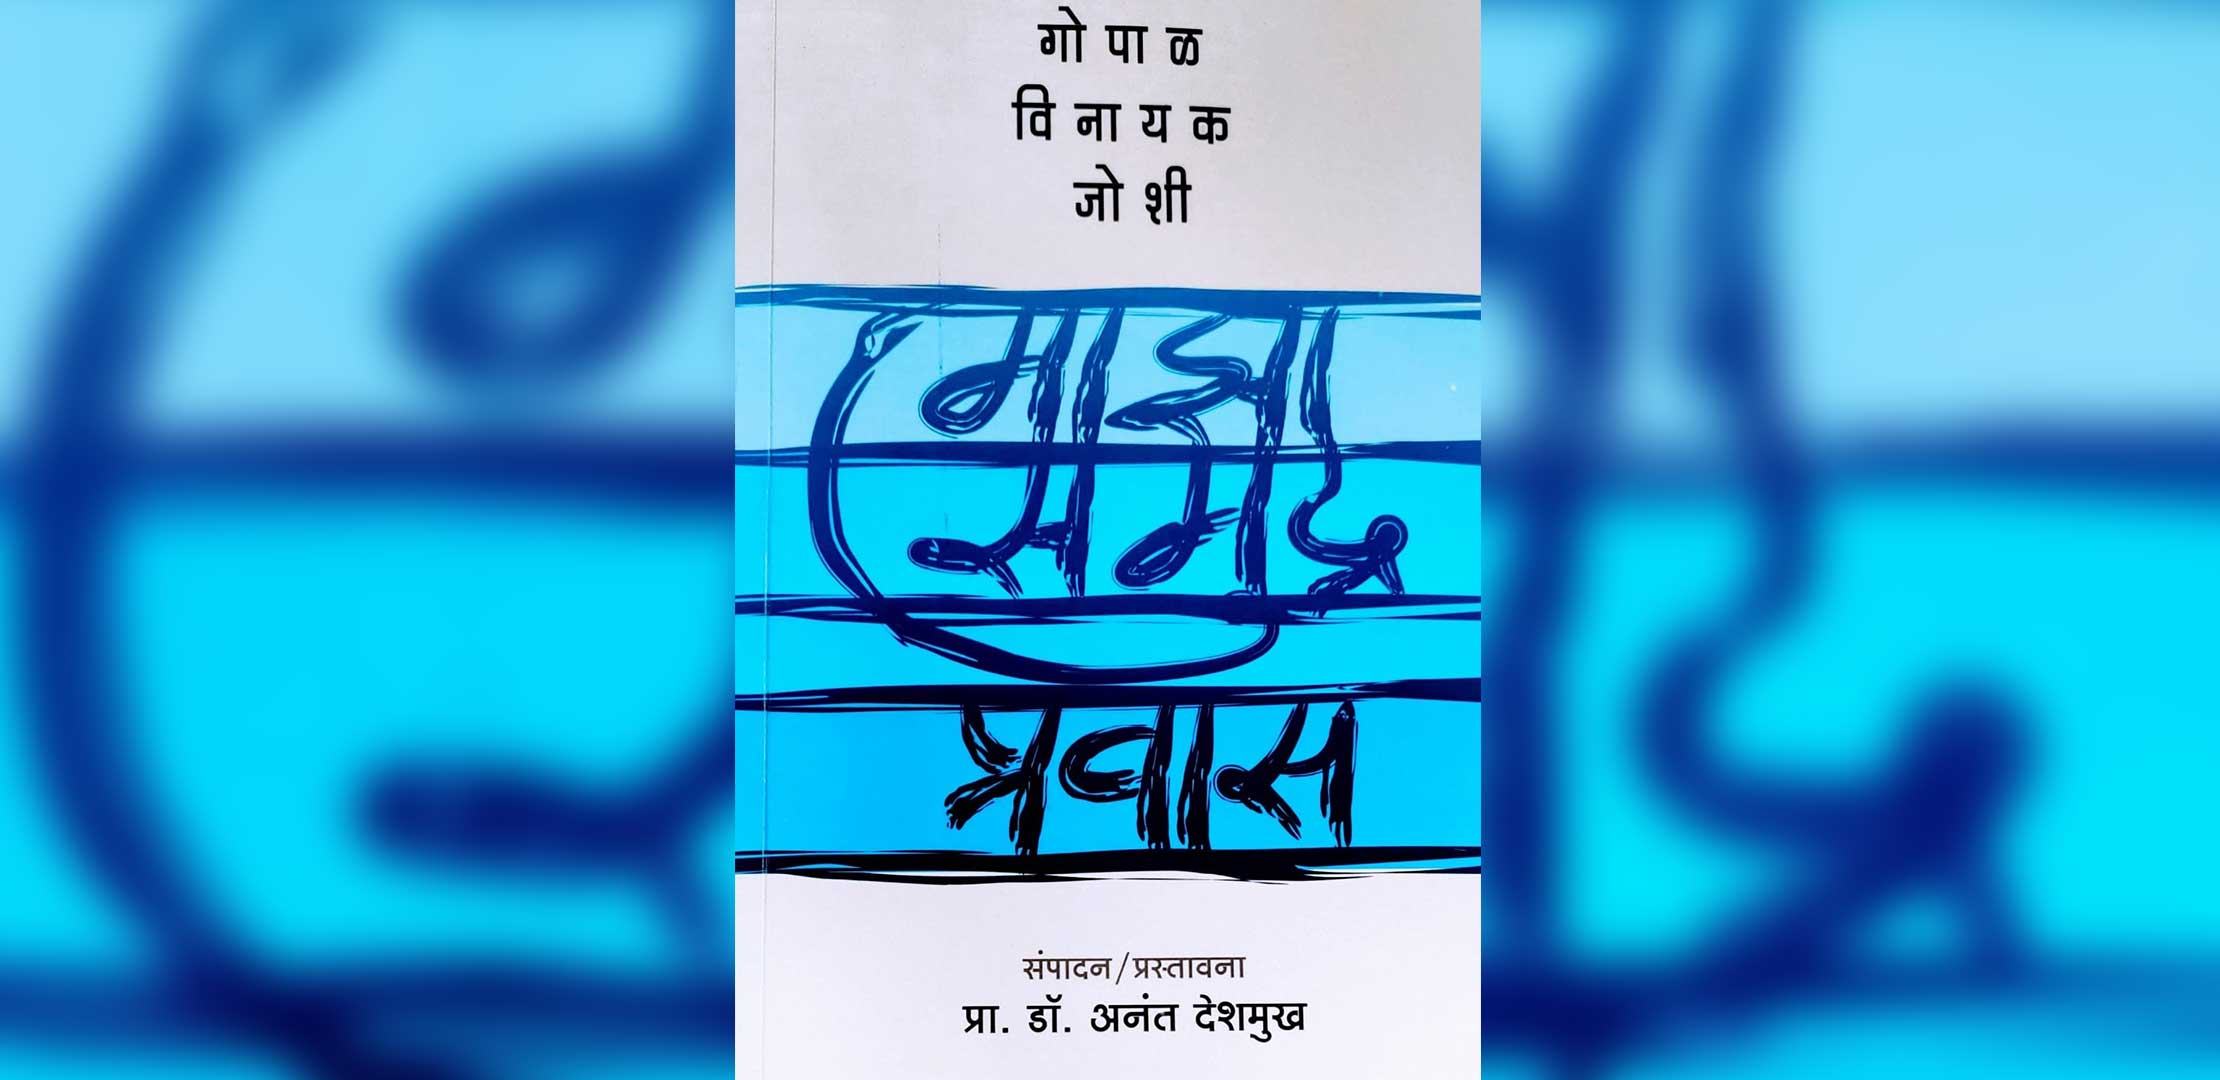 गोपाळ
विनायक
जोशी
माझा
समुद्र
प्रवास
संपादन/प्रस्तावना
प्रा. डॉ. अनंत देशमुख